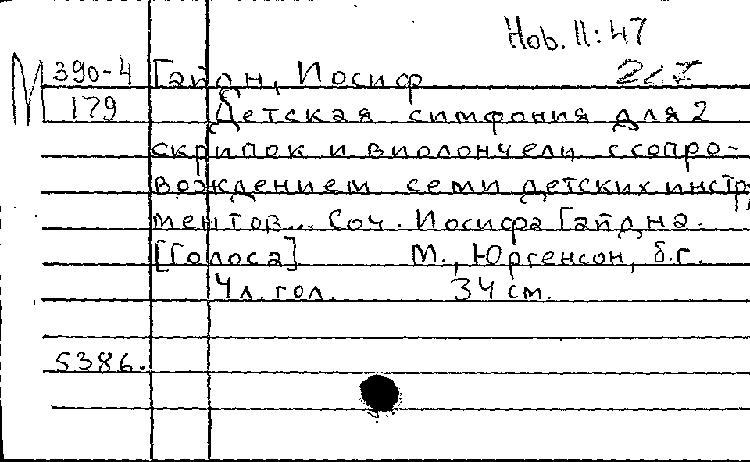 Нов. II:47
М 390-4 Гайдн, Иосиф
179 Детская симфония для 2
скрипок и виолончели с сопро-
вождением семи детских инстру
ментов... Соч. Иосифа Гайдна.
[Голоса] М., Юргенсон, б.г.
4 л. гол. 34 см.
5386.